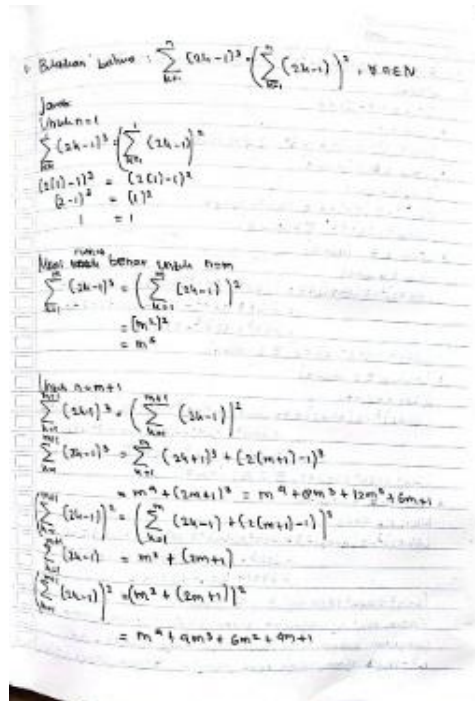 Buktikan bahwa : \sum_{k=1}^{n} (2k-1)^3 = \left( \sum_{k=1}^{n} (2k-1) \right)^2 , ∀ n ∈ N
Jawab
Untuk n=1
\sum_{k=1}^{1} (2k-1)^3 = \left( \sum_{k=1}^{1} (2k-1) \right)^2
(2(1)-1)^3 = (2(1)-1)^2
(2-1)^3 = (1)^2
1 = 1
benar untuk n=m
\sum_{k=1}^{m} (2k-1)^3 = \left( \sum_{k=1}^{m} (2k-1) \right)^2
= (m^2)^2
= m^4
Untuk n=m+1
\sum_{k=1}^{m+1} (2k-1)^3 = \left( \sum_{k=1}^{m+1} (2k-1) \right)^2
\sum_{k=1}^{m+1} (2k-1)^3 = \sum_{k=1}^{m} (2k+1)^3 + (2(m+1)-1)^3
= m^4 + (2m+1)^3 = m^4 + 8m^3 + 12m^2 + 6m+1
\left( \sum_{k=1}^{m+1} (2k-1) \right)^2 = \left( \sum_{k=1}^{m} (2k-1) + (2(m+1)-1) \right)^2
\sum_{k=1}^{m+1} (2k-1) = m^2 + (2m+1)
\left( \sum_{k=1}^{m+1} (2k-1) \right)^2 = (m^2 + (2m+1))^2
= m^4 + 4m^3 + 6m^2 + 4m+1